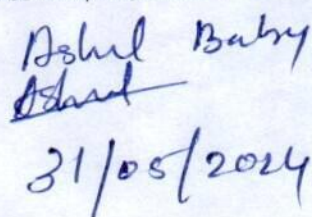 Ashil Baby
Ashil
31/05/2024